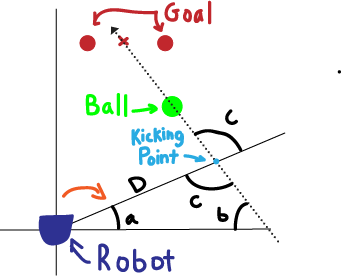 Goal
x
Ball
C
Kicking
Point
D
C
a
b
Robot